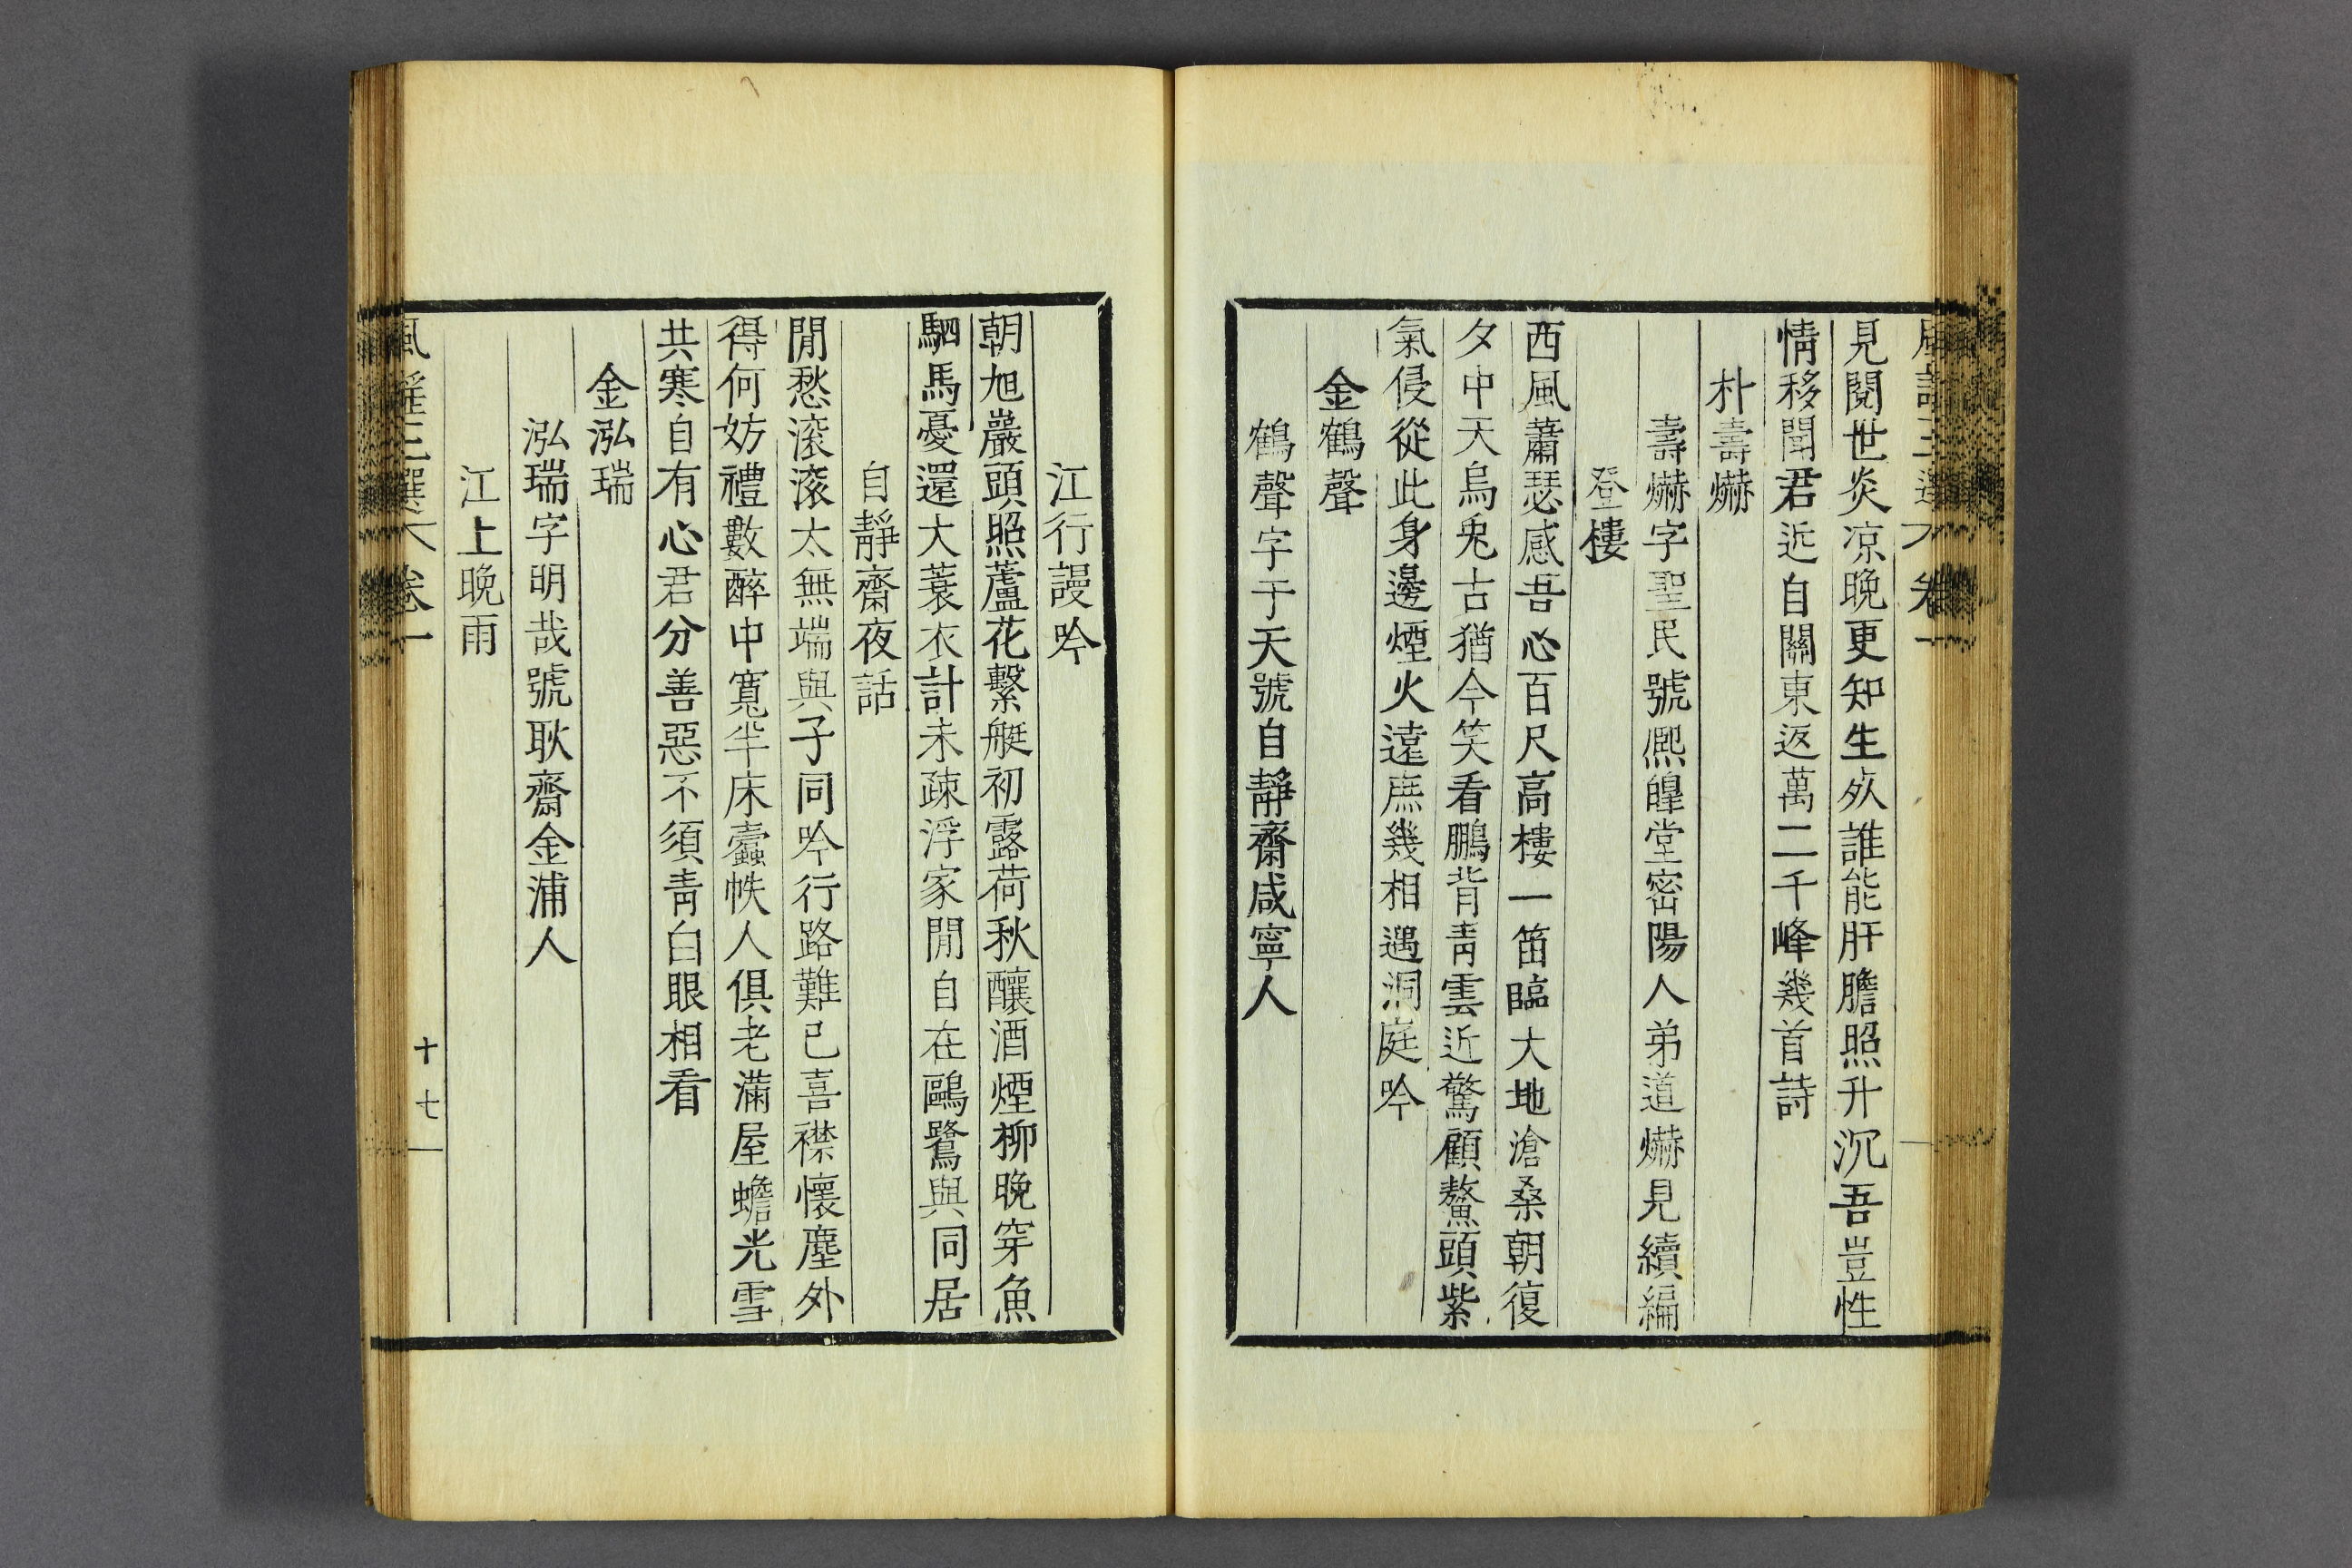 見閱世炎凉晚更知生㱕誰能肝膽照升沉吾豈性
情移聞君近自關東返萬二千峰幾首詩
朴壽爀
壽爀字聖民號熙皥堂密陽人弟道爀見續編
登樓
西風蕭瑟感吾心百尺高樓一笛臨大地滄桑朝復
夕中天烏兎古猶今笑看鵬背靑雲近驚顧鰲頭紫
氣侵從此身邊煙火遠庶幾相遇洞庭吟
金鶴聲
鶴聲字于天號自靜齋咸寧人
江行謾吟
朝旭巖頭照蘆花繫艇初露荷秋釀酒煙柳晚穿魚
駟馬憂還大蓑衣計未疎浮家閒自在鷗鷺與同居
自靜齋夜話
閒愁滚滚太無端與子同吟行路難已喜襟懷塵外
得何妨禮數醉中寬半床蠹帙人俱老滿屋蟾光雪
共寒自有心君分善惡不須靑白眼相看
金泓瑞
泓瑞字明哉號耿齋金浦人
江上晚雨
風謠三選 卷一
十七